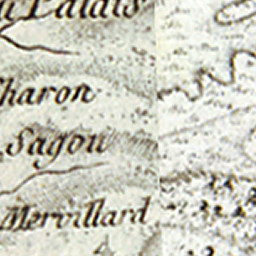 Palais
Charon
Sagou
Mervillard